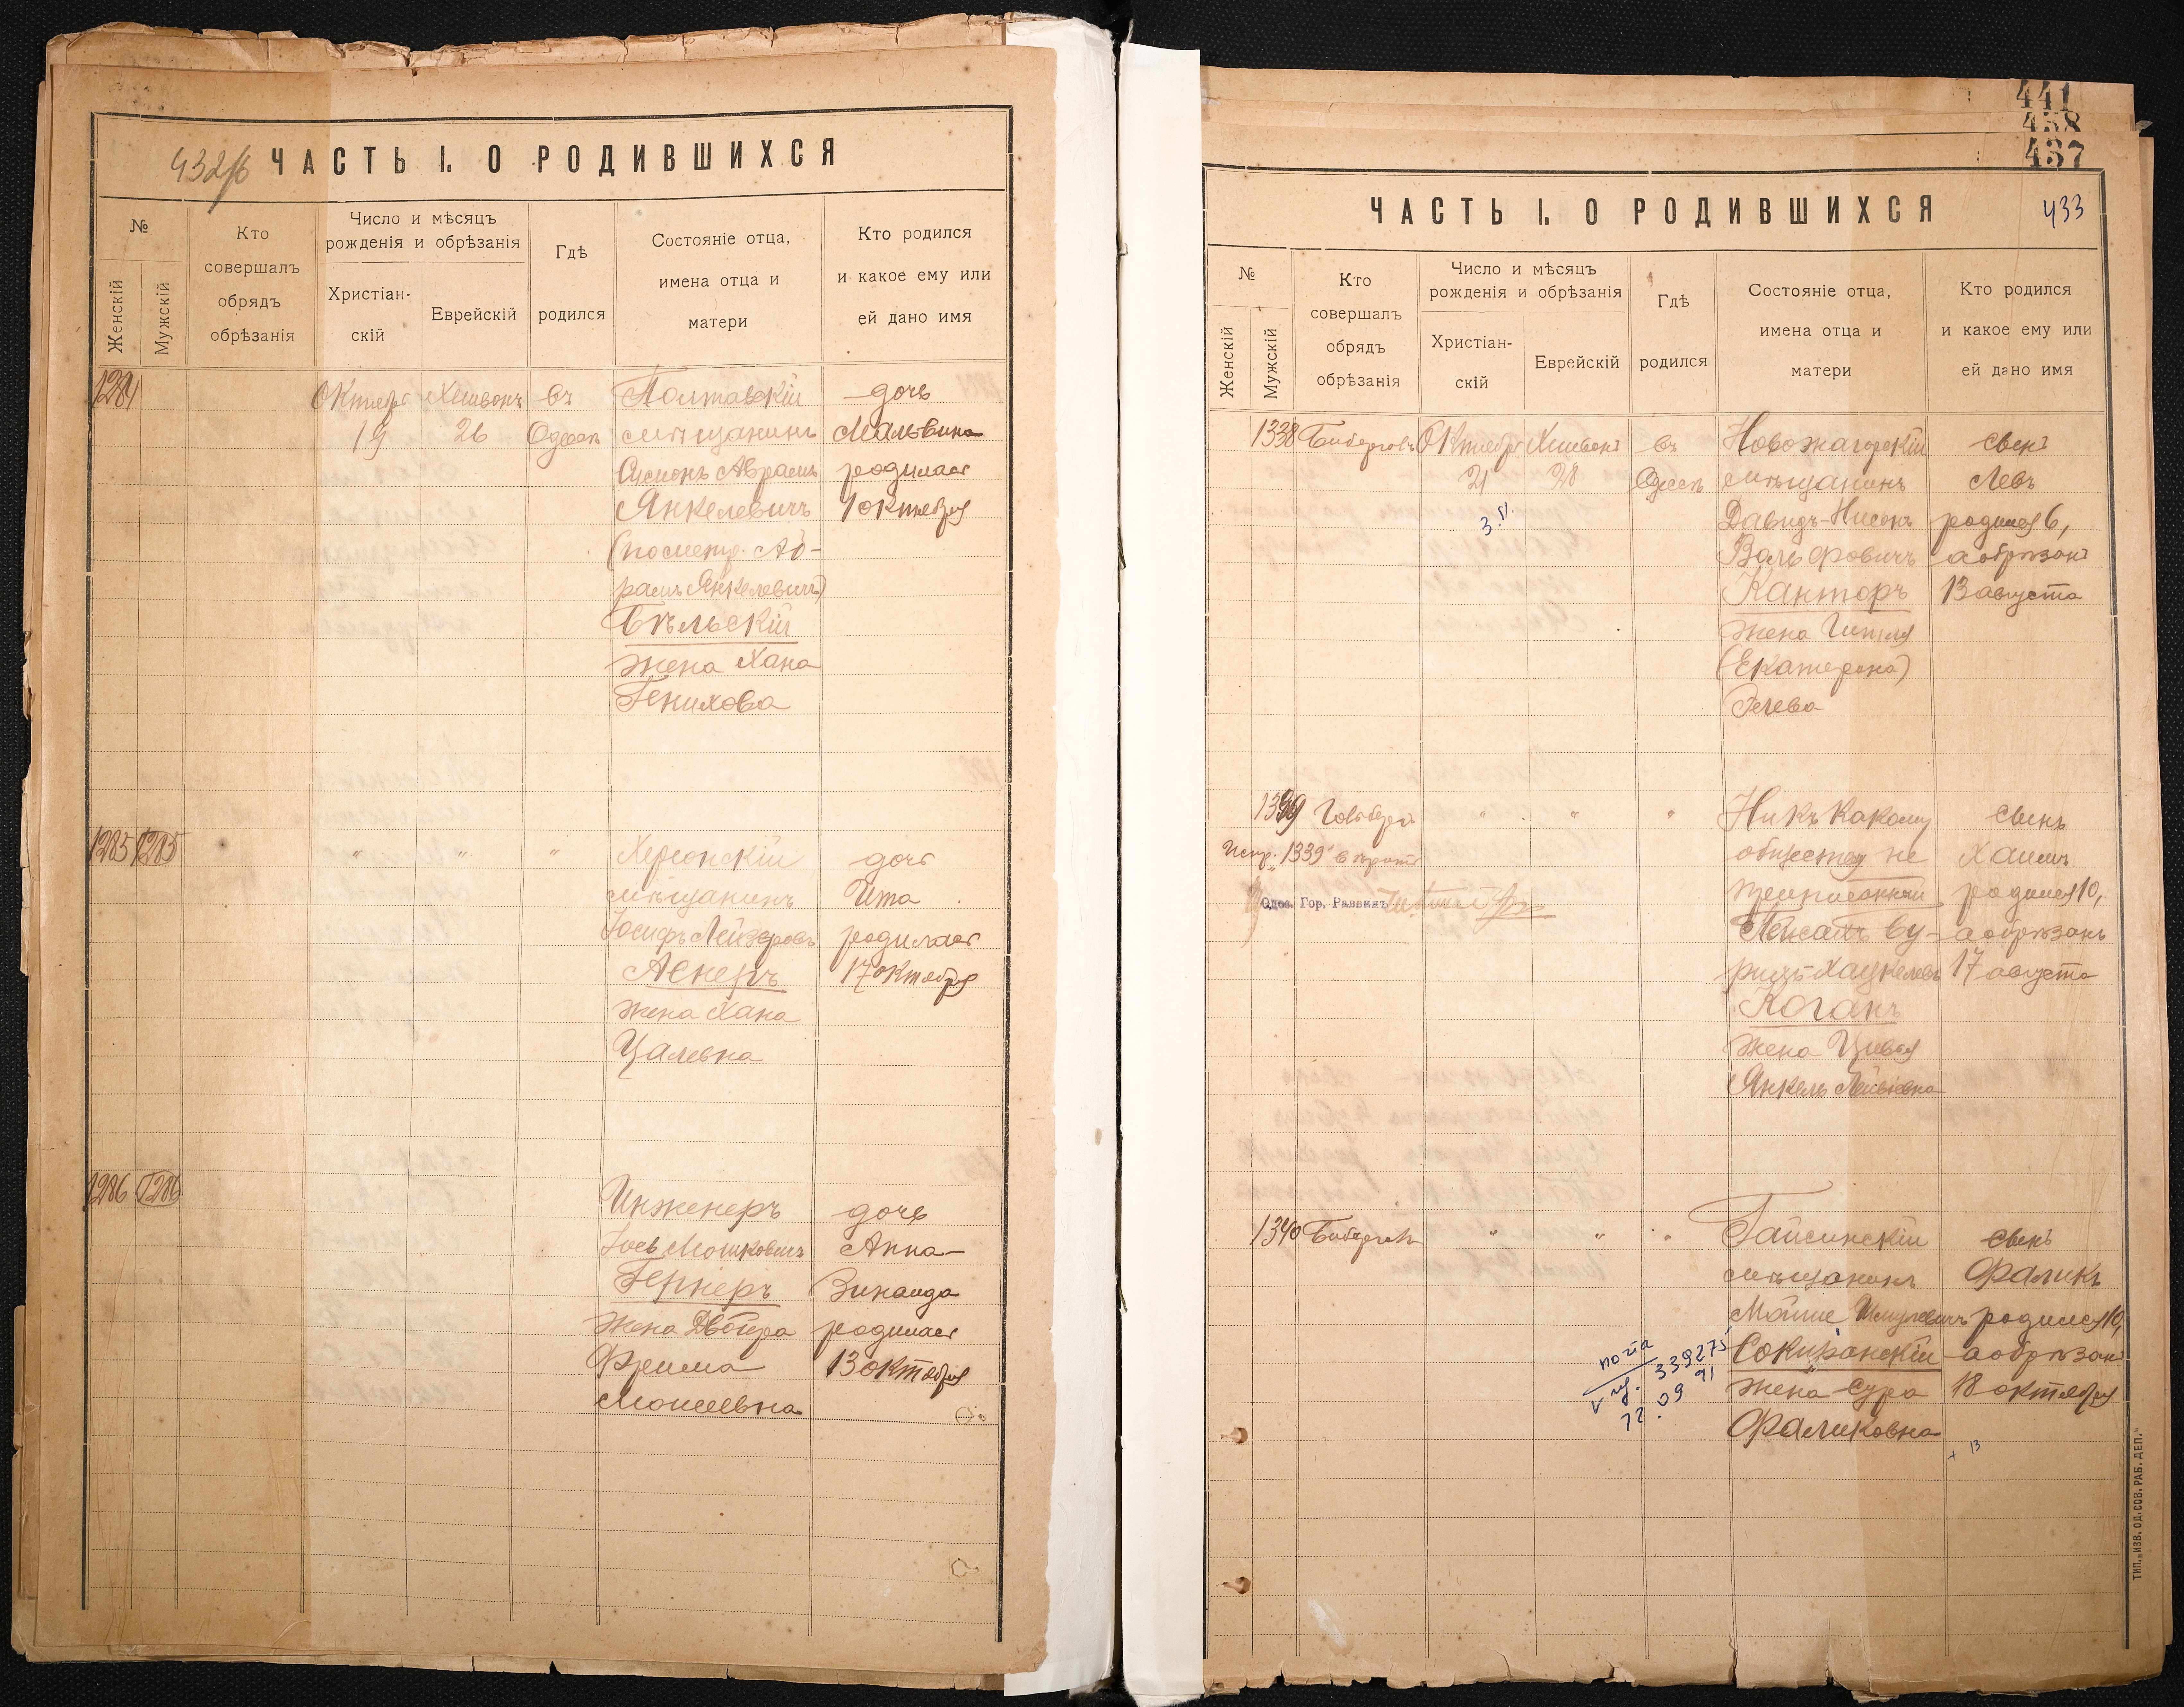 432/б
ЧАСТЬ I. О РОДИВШИХСЯ
№
Женскій
Мужскій
Кто
совершалъ
обрядъ
обрѣзанія
Число и мѣсяцъ
рожденія и обрѣзанія
Христіан-
скій
Еврейскій
Гдѣ
родился
Состояніе отца,
имена отца и
матери
Кто родился
и какое ему или
ей дано имя
1284 Октября Хешвонъ въ Полтавскій дочь
19 26 Одессѣ мѣщанинъ Мальвина
Симонъ Аврамъ родилась
Янкелевичъ 1 октября
(по метр. Аб-
рамъ Янкелевичъ)
Бѣльскій
жена Хана
Генихова
1285 1285 " " " Херсонскій дочь
мѣщанинъ Ита
Іосифъ Лейзеровъ родилась
Аснеръ 17 октября
жена Хана
Цалевна
1286 1286 Инженеръ дочь
Іось Мошковичъ Анна-
Гернеръ Зинаида
жена Двойра родилась
Фрима 13 октября
Моисеевна
441
438
437
ЧАСТЬ I. О РОДИВШИХСЯ 433
№
Женскій
Мужскій
Кто
совершалъ
обрядъ
обрѣзанія
Число и мѣсяцъ
рожденія и обрѣзанія
Христіан-
скій
Еврейскій
Гдѣ
родился
Состояніе отца,
имена отца и
матери
Кто родился
и какое ему или
ей дано имя
1338 Октября Хешвонъ въ Новожагорскій сынъ
21 28 Одессѣ мѣщанинъ Левъ
Давидъ-Нисонъ родился 6,
Вольфовичъ а обрѣзанъ
Канторъ 13 августа
жена Гитля
(Екатерина)
1339 Гольдбергъ " " " Ни къ какому сынъ
Испр. "1339" вѣрно обществу не Хаимъ
приписанный родился 10,
Одес. Гор. Раввинъ а обрѣзанъ
17 августа
Коганъ
жена Цивья
Янкель Лейбовна
1340 " " " Гайсинскій сынъ
мѣщанинъ Фаликъ
Мойше родился 10,
Сокирянскій а обрѣзанъ
жена Сура 18 октября
Фаликовна
339275
09 91
72
+ 13
ТИП. „ИЗВ. ОД. СОВ. РАБ. ДЕП."